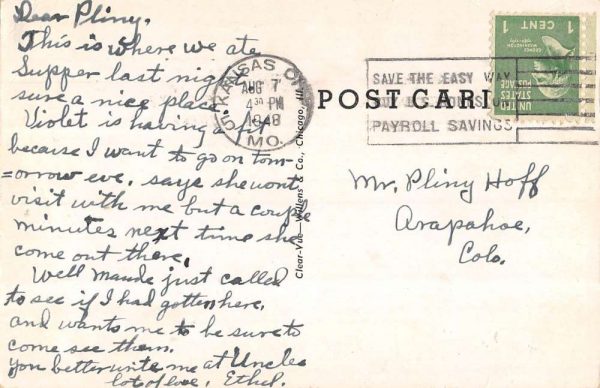 Dear Pliny,
This is where we ate
Supper last night
sure a nice place.
Violet is having a fit
because I want to go on tom-
=orrow eve. says she wont
visit with me but a couple
minutes next time she
come out there.
Well Maude just called
to see if I had gotten here.
and wants me to be sure to
come see them.
You better write me at Uncles
lots of love, Ethel.
KANSAS CITY
AUG 7
4 30 PM
1948
MO.
SAVE THE EASY WAY
BUY U.S. BONDS
PAYROLL SAVINGS
1 CENT 1
UNITED
STATES
POSTAGE
POST CARD
Clear-Vue—Willens & Co., Chicago, Ill.
Mr. Pliny Hoff
Arapahoe,
Colo.